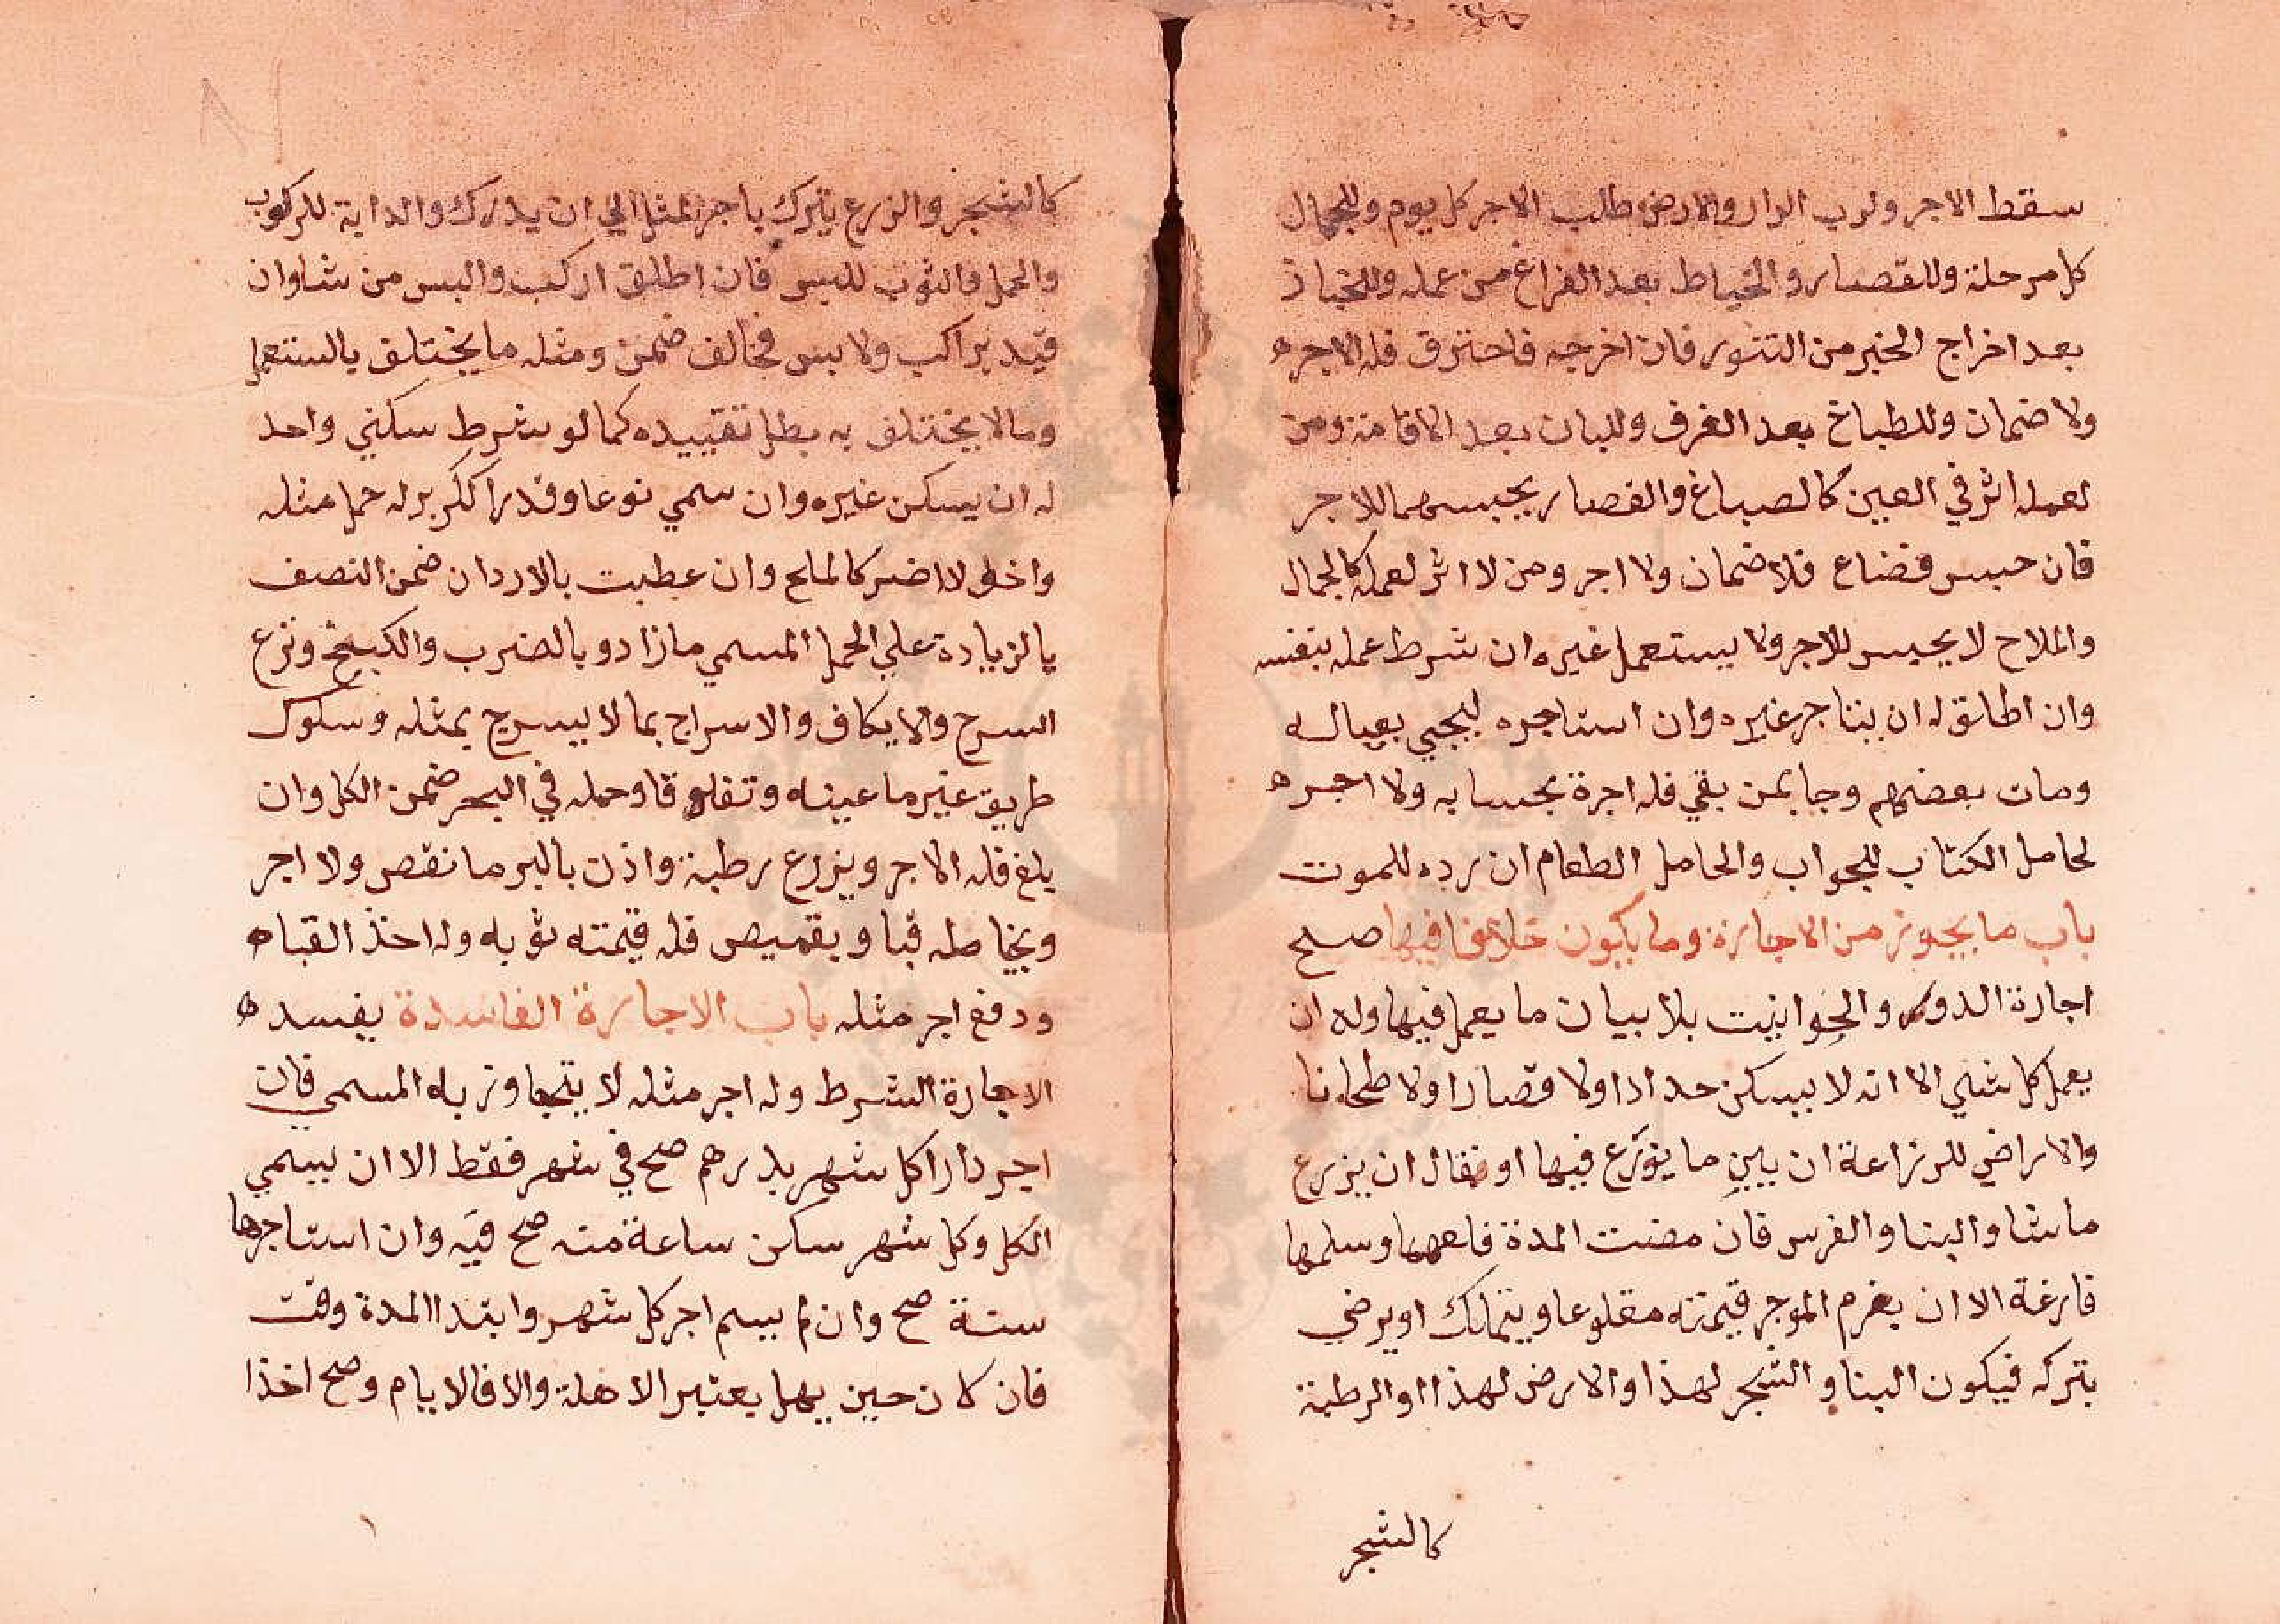 سقط الاجر ولرب الدار والارض طلب الاجر كل يوم وللجمال
كل مرحلة وللقصار والخياط بعد الفراغ من عمله وللخباز
بعد اخراج الخبز من التنور فان اخرجه فاحترق فله الاجره
ولا ضمان وللطباخ بعد الغرف وللبان بعد الاقامة ومن
لعمله اثر في العين كالصباغ والقصار يحبسهما للاجر
فان حبس فضاع فلا ضمان ولا اجر ومن لا اثر لعمله كالجمال
والملاح لا يحبس للاجر ولا يستعمل غيره ان شرط عمله بنفسه
وان اطلق له ان يستاجر غيره وان استاجره ليجيي بعياله
ومات بعضهم وجا بمن بقي فله اجرة بحسابه ولا اجره
لحامل الكتاب للجواب والحامل الطعام ان رده للموت
باب ما يجوز من الاجارة وما يكون خلافا فيها صح
اجارة الدور والحوانيت بلا بيان ما يعمل فيها وله ان
يعمل كل شي الا انه لا يسكن حدادا ولا قصارا ولا طحانا
والاراضي للزراعة ان يبين ما يزرع فيها او فقال ان يزرع
ما شا والبنا والغرس فان مضت المدة قلعهما وسلمها
فارغة الا ان يغرم الموجر قيمته مقلوعا ويتملك او يرضي
بتركه فيكون البنا والشجر لهذا والارض لهذا والرطبة
كالشجر
كالشجر والزرع يترك باجر المثل الي ان يدرك والدابة للركوب
والحمل والثوب للبس فان اطلق اركب والبس من شا وان
قيد براكب ولابس فخالف ضمن ومثله ما يختلف بالمستعمل
وما لا يختلف به بطل تقييده كما لو شرط سكني واحد
له ان يسكن غيره وان سمي نوعا وقدرا ككر بر له حمل مثله
واخف لا اضر كالملح وان عطبت بالارداف ضمن النصف
بالزيادة علي الحمل المسمي ما زاد وبالضرب والكبح ونزع
السرج والايكاف والاسراج بما لا يسرج بمثله وسلوك
طريق غير ما عينه وتفاوتا وحمله في البحر ضمن الكل وان
بلغ فله الاجر ويزرع رطبة واذن بالبر ما نقص ولا اجر
وبخياطة قبا وبقميص فله قيمته ثوبه وله اخذ القباه
ودفع اجر مثله باب الاجارة الفاسدة يفسده
الاجارة الشرط وله اجر مثله لا يتجاوز به المسمي فان
اجر دارا كل شهر بدرهم صح في شهر فقط الا ان يسمي
الكل وكل شهر سكن ساعة منه صح فيه وان استاجرها
سنة صح وان لم يسم اجر كل شهر وابتدا المدة وقت
فان كان حين يهل يعتبر الاهلة والا فالايام وصح اخذ